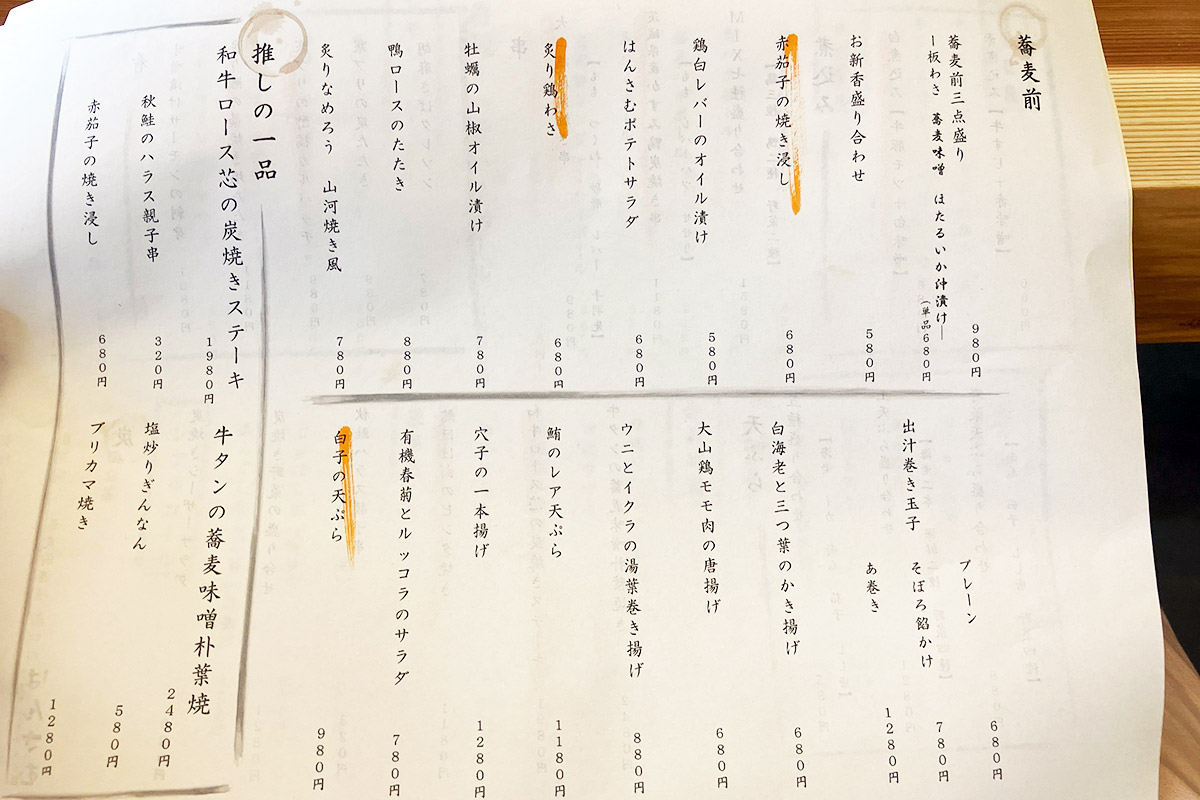 蕎麦前
蕎麦前三点盛り 980円
―板わさ 蕎麦味噌 ほたるいか沖漬け―
(単品680円)
お新香盛り合わせ 580円
赤茄子の焼き浸し 680円
鶏白レバーのオイル漬け 580円
はんさむポテトサラダ 680円
炙り鶏わさ 680円
牡蠣の山椒オイル漬け 780円
鴨ロースのたたき 880円
炙りなめろう 山河焼き風 780円
出汁巻き玉子
プレーン 680円
そぼろ餡かけ 780円
う巻き 1280円
白海老と三つ葉のかき揚げ 680円
大山鶏モモ肉の唐揚げ 680円
ウニとイクラの湯葉巻き揚げ 880円
鮪のレア天ぷら 1180円
穴子の一本揚げ 1280円
有機春菊とルッコラのサラダ 780円
白子の天ぷら 980円
推しの一品
和牛ロース芯の炭焼きステーキ 1980円
秋鮭のハラス親子串 320円
赤茄子の焼き浸し 680円
牛タンの蕎麦味噌朴葉焼 2480円
塩炒りぎんなん 580円
ブリカマ焼き 1280円